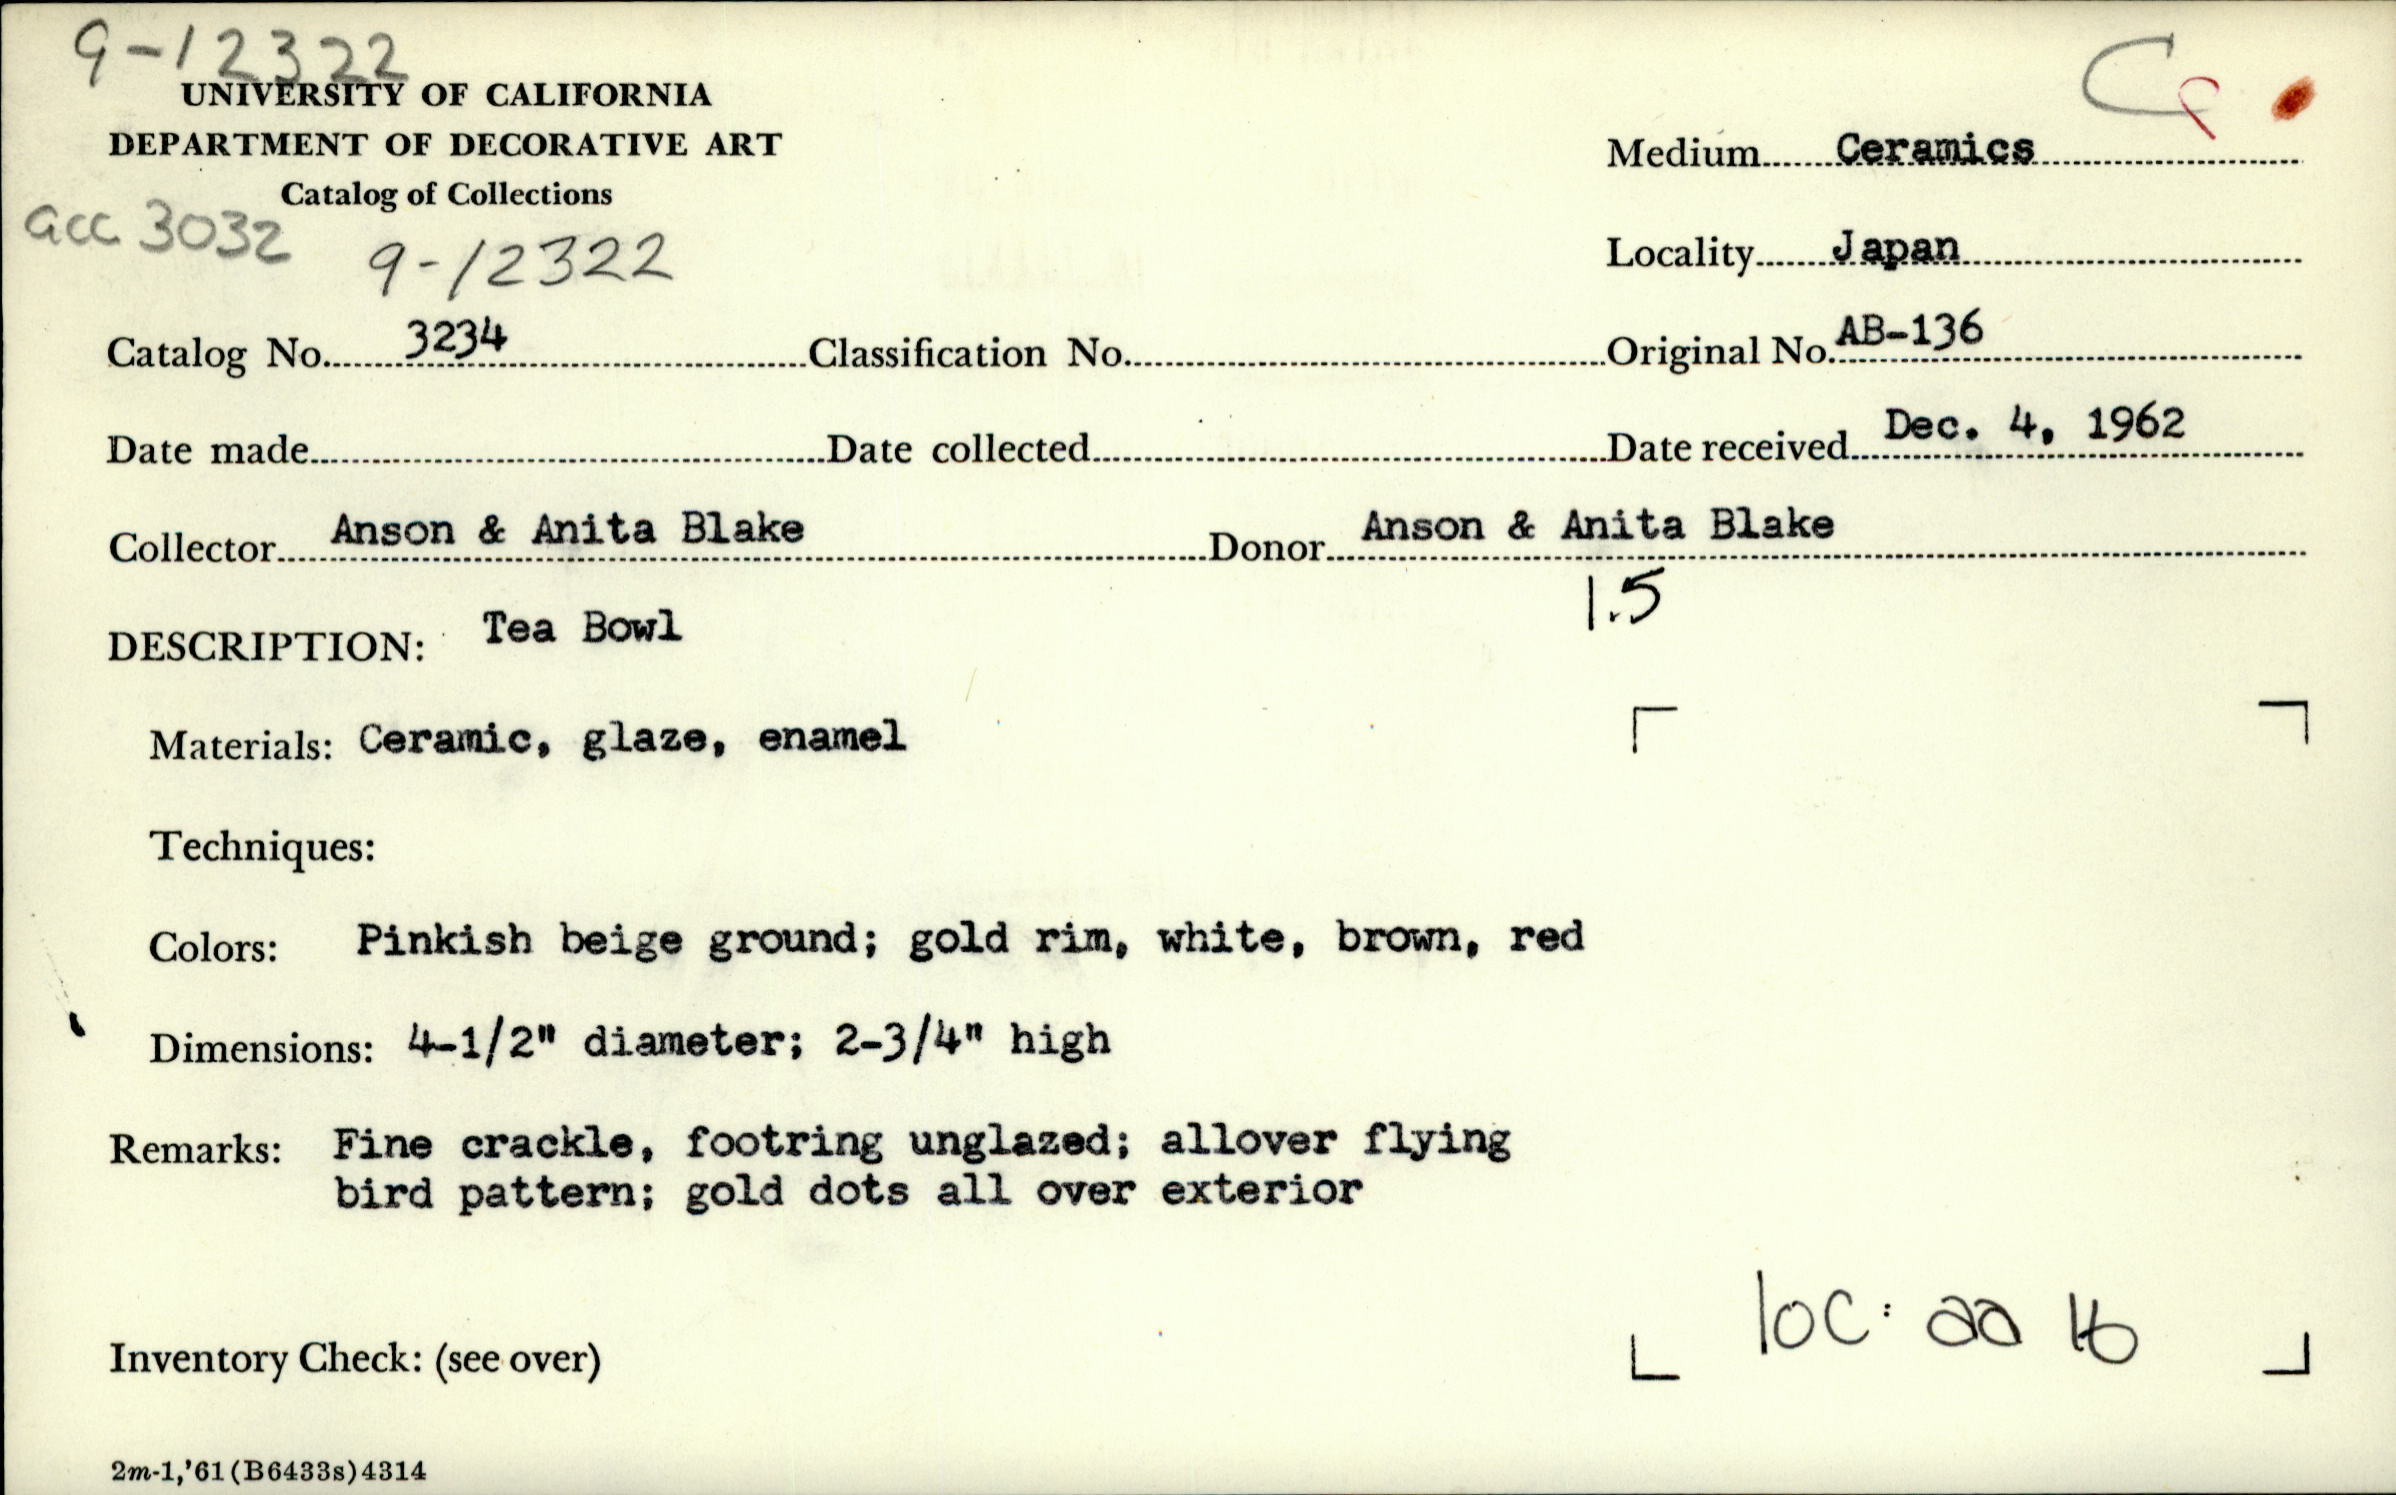 9-12322
UNIVERSITY OF CALIFORNIA
DEPARTMENT OF DECORATIVE ART
Catalog of Collections
acc 3032
9-12322
C
Medium Ceramics
Locality Japan
Catalog No. 3234 Classification No. Original No. AB-136
Date made Date collected Date received Dec. 4, 1962
Collector Anson & Anita Blake Donor Anson & Anita Blake
1.5
DESCRIPTION: Tea Bowl
Materials: Ceramic, glaze, enamel
Techniques:
Colors: Pinkish beige ground; gold rim, white, brown, red
Dimensions: 4-1/2" diameter; 2-3/4" high
Remarks: Fine crackle, footring unglazed; allover flying
bird pattern; gold dots all over exterior
loc: aa
Inventory Check: (see over)
2m-1,'61(B6433s)4314